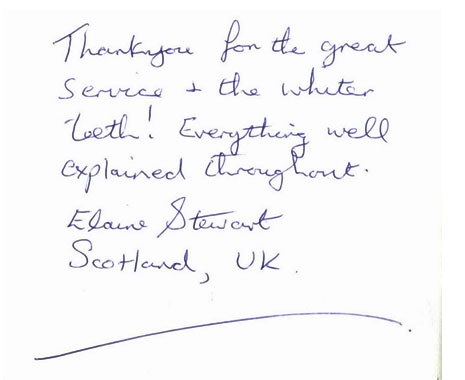 Thankyou for the great
service + the whiter
teeth! Everything well
explained throughout.
Elaine Stewart
Scotland, UK.